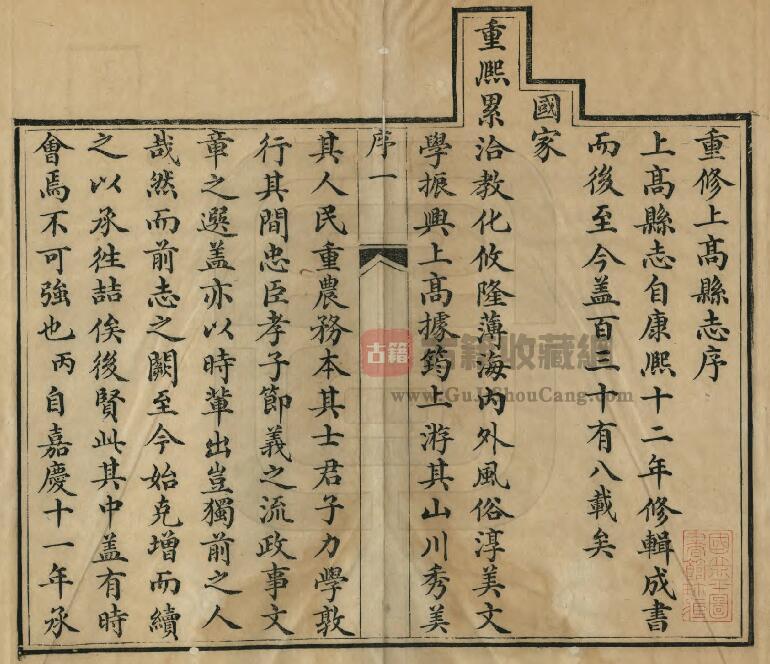 重修上髙縣志序
上髙縣志自康熙十二年修輯成書
而後至今盖百三十有八載矣
國家
重熈累洽教化攸隆薄海内外風俗淳美文
學振興上髙據筠上游其山川秀美
序一
其人民重農務本其士君子力學敦
行其間忠臣孝子節義之流政事文
章之選盖亦以時軰出豈獨前之人
哉然而前志之闕至今始克增而續
之以承徃喆俟後賢此其中盖有時
會焉不可強也丙自嘉慶十一年承
古籍
古籍收藏網
www.GuJiShouCang.com